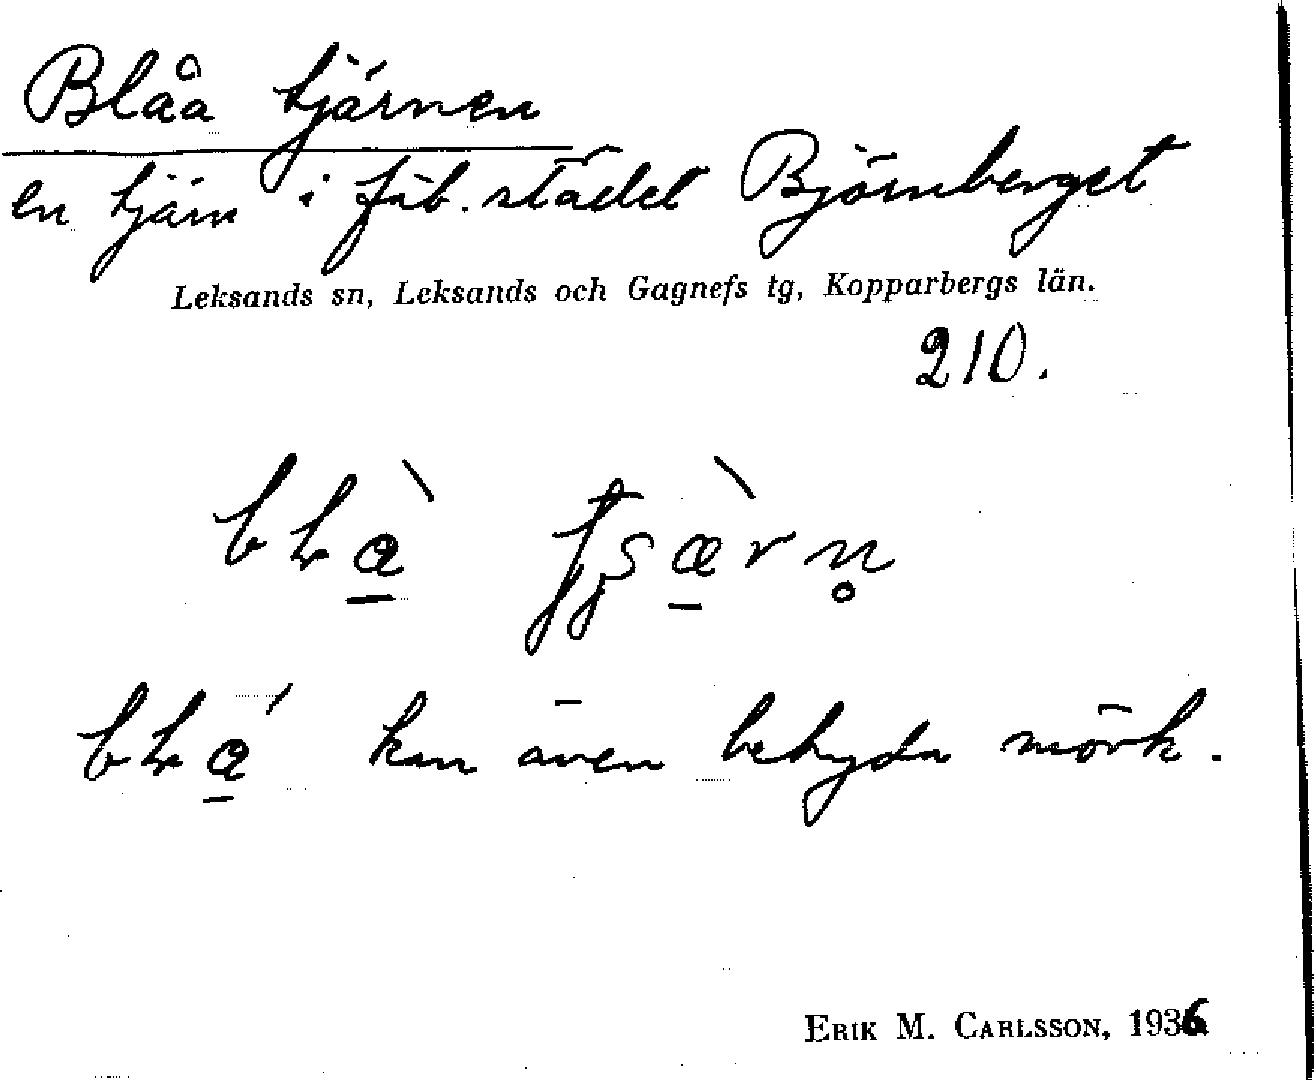 Blåa tjärnen
en tjärn i fäb. städet Björnberget
Leksands sn, Leksands och Gagnefs tg, Kopparbergs län.
210.
kan även betyda mörk.
ERIK M. CARLSSON, 1936